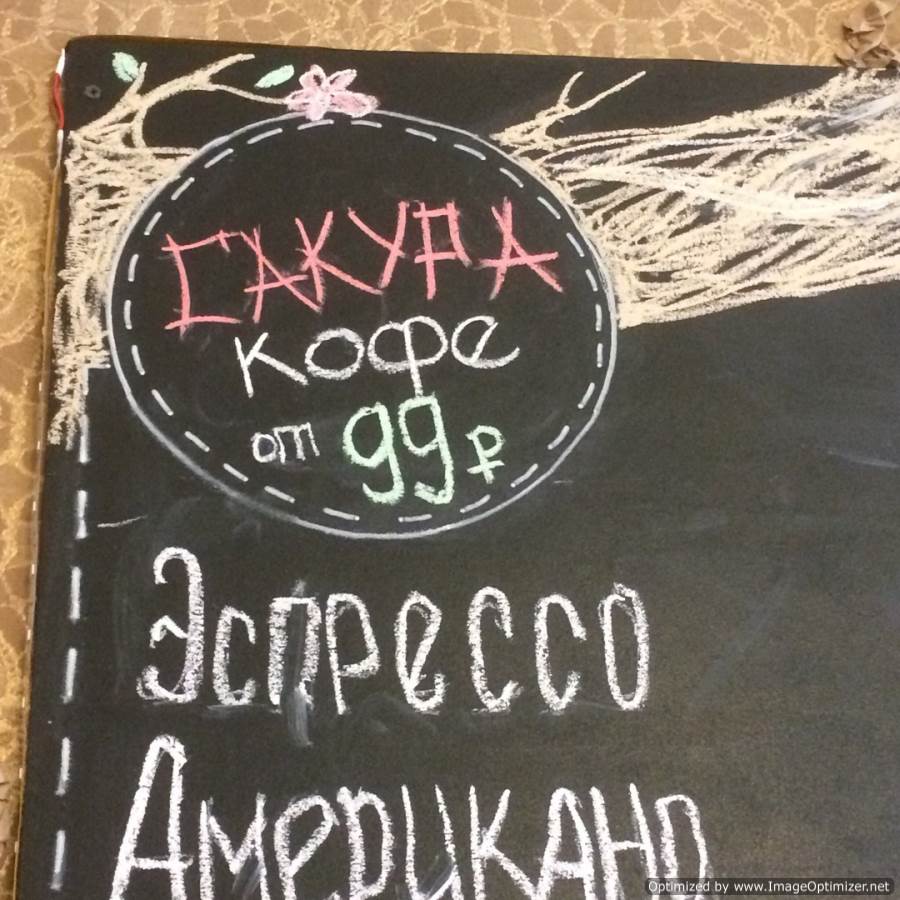 САКУРА
кофе
от 99 ₽
Эспрессо
Американо
Optimized by www.ImageOptimizer.net